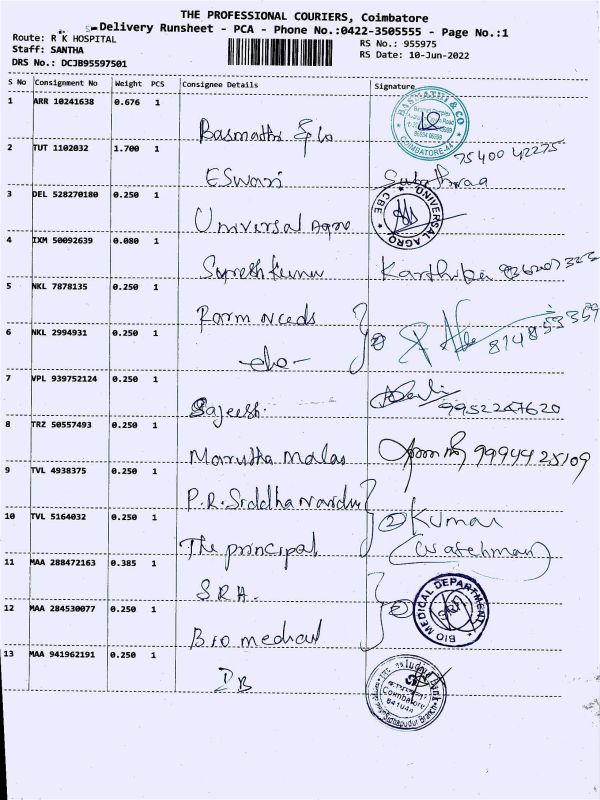 THE PROFESSIONAL COURIERS, Coimbatore
Delivery Runsheet - PCA - Phone No.:0422-3505555 - Page No.:1
Route: R K HOSPITAL
Staff: SANTHA
DRS No.: DCJB95597501
RS No.: 955975
RS Date: 10-Jun-2022
S No Consignment No Weight PCS Consignee Details Signature
1 ARR 10241638 0.676 1 Basmathi & Co
BASMATHI & CO
COIMBATORE-44
2 TUT 1102032 1.700 1 ESwari 75400 42275
3 DEL 528270180 0.250 1 Universal Agro
UNIVERSAL AGRO
CBE
4 IXM 50092639 0.080 1 Sureshkumar Karthika
5 NKL 7878135 0.250 1 Farm Needs
6 NKL 2994931 0.250 1 -do-
7 VPL 939752124 0.250 1 Sajeesh. 9952247620
8 TRZ 50557493 0.250 1 Marutha Malai 99944 25109
9 TVL 4938375 0.250 1 P.R. Siddha
10 TVL 5164032 0.250 1 The principal ② Kumar
(watchman)
11 MAA 288472163 0.385 1 S.R.H.
12 MAA 284530077 0.250 1 Bio medical ②
BIO MEDICAL DEPARTMENT
13 MAA 941962191 0.250 1 IB
Coimbatore
641044